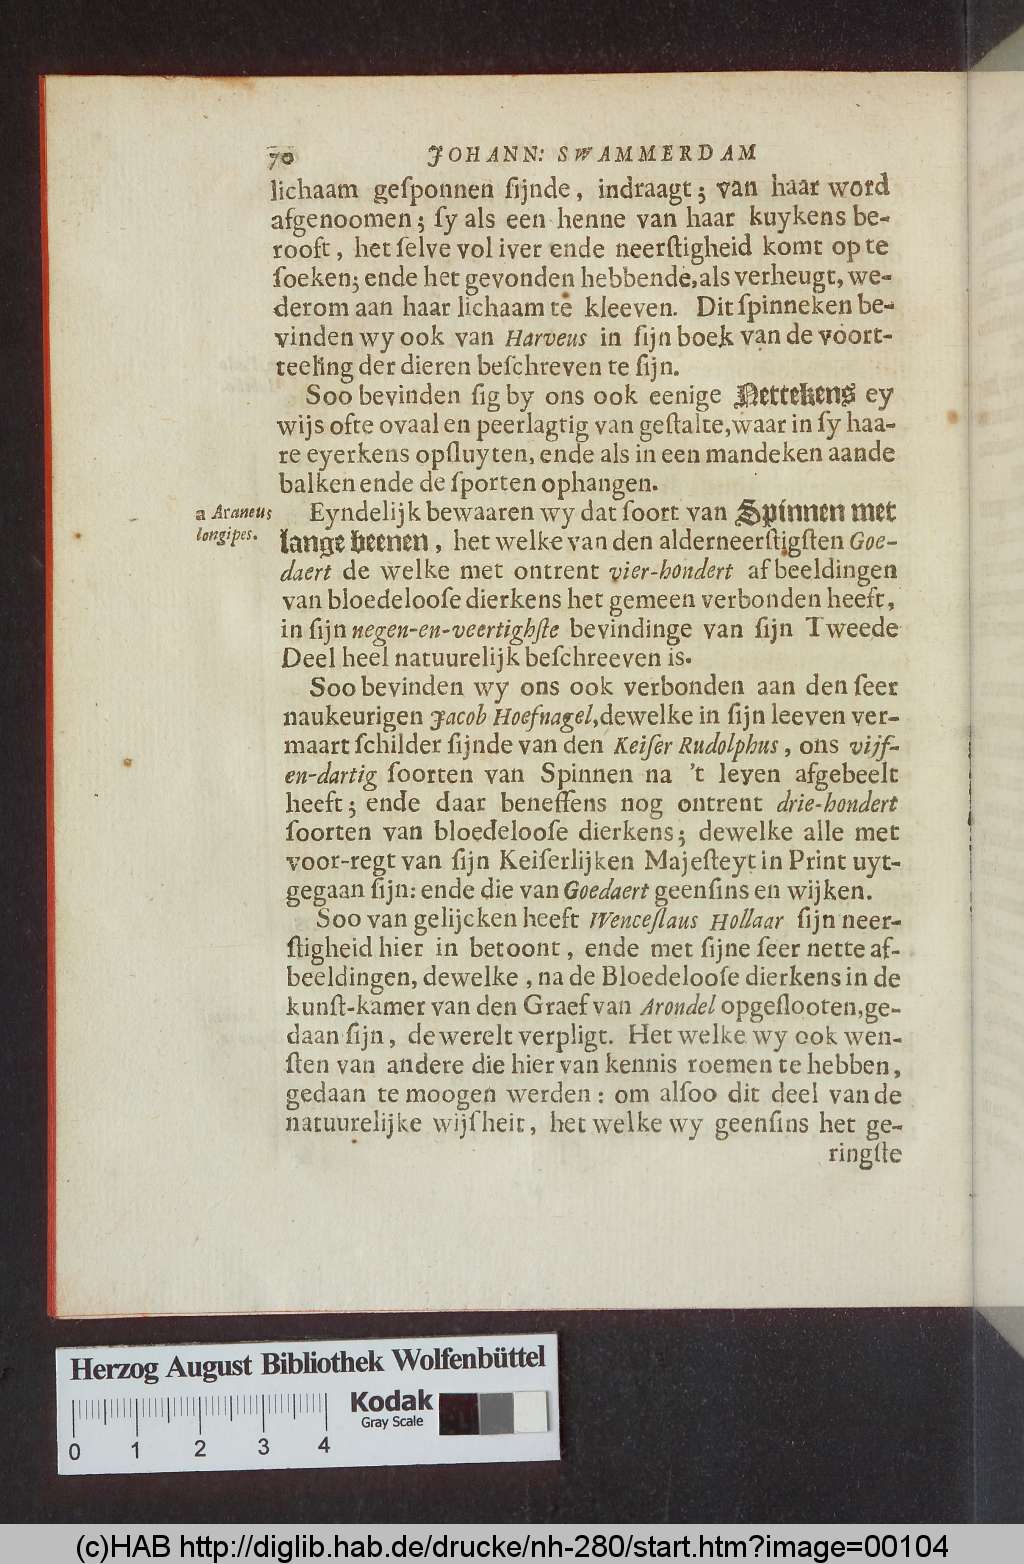 70 JOHANN: SWAMMERDAM
lichaam geſponnen ſijnde, indraagt; van haar word
afgenoomen; ſy als een henne van haar kuykens be-
rooft, het ſelve vol iver ende neerſtigheid komt op te
ſoeken; ende het gevonden hebbende, als verheugt, we-
derom aan haar lichaam te kleeven. Dit ſpinneken be-
vinden wy ook van Harveus in ſijn boek van de voort-
teeling der dieren beſchreven te ſijn.
Soo bevinden ſig by ons ook eenige Nettekens ey
wijs ofte ovaal en peerlagtig van geſtalte, waar in ſy haa-
re eyerkens opſluyten, ende als in een mandeken aande
balken ende de ſporten ophangen.
a Araneus longipes.
Eyndelijk bewaaren wy dat ſoort van Spinnen met
lange beenen, het welke van den alderneerſtigſten Goe-
daert de welke met ontrent vier-hondert afbeeldingen
van bloedelooſe dierkens het gemeen verbonden heeft,
in ſijn negen-en-veertighſte bevindinge van ſijn Tweede
Deel heel natuurelijk beſchreeven is.
Soo bevinden wy ons ook verbonden aan den ſeer
naukeurigen Jacob Hoefnagel, dewelke in ſijn leeven ver-
maart ſchilder ſijnde van den Keiſer Rudolphus, ons vijf-
en-dartig ſoorten van Spinnen na 't leyen afgebeelt
heeft; ende daar beneffens nog ontrent drie-hondert
ſoorten van bloedelooſe dierkens; dewelke alle met
voor-regt van ſijn Keiſerlijken Majeſteyt in Print uyt-
gegaan ſijn: ende die van Goedaert geenſins en wijken.
Soo van gelijcken heeft Wenceſlaus Hollaar ſijn neer-
ſtigheid hier in betoont, ende met ſijne ſeer nette af-
beeldingen, dewelke, na de Bloedelooſe dierkens in de
kunſt-kamer van den Graef van Arondel opgeſlooten, ge-
daan ſijn, de werelt verpligt. Het welke wy ook wen-
ſten van andere die hier van kennis roemen te hebben,
gedaan te moogen werden: om alſoo dit deel van de
natuurelijke wijſheit, het welke wy geenſins het ge-
ringſte
Herzog August Bibliothek Wolfenbüttel
Kodak
Gray Scale
0 1 2 3 4
(c)HAB http://diglib.hab.de/drucke/nh-280/start.htm?image=00104